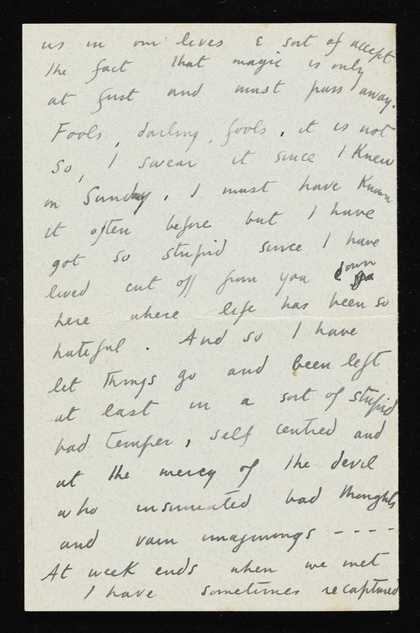 us in our lives & sort of accept
the fact that magic is only
at first and must pass away.
Fools, darling, fools, it is not
so, I swear it since I knew
on Sunday, I must have known
it often before but I have
got so stupid since I have
lived cut off from you down
here where life has been so
hateful. And so I have
let things go and been left
at last in a sort of stupid
bad temper, self centred and
at the mercy of the devil
who insinuated bad thoughts
and vain imaginings ----
At week ends when we met
I have sometimes recaptured